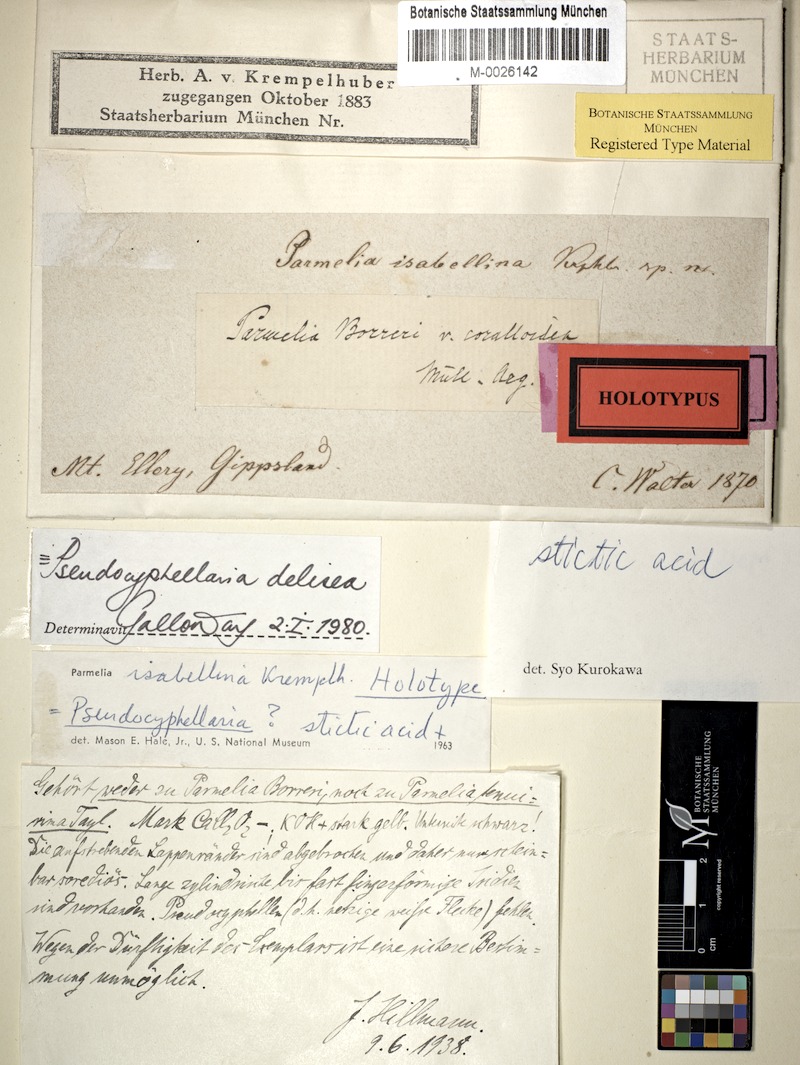 Botanische Staatssammlung München
M-0026142
STAATS-
HERBARIUM
MÜNCHEN
Herb. A. v. Krempelhuber
zugegangen Oktober 1883
Staatsherbarium München Nr.
BOTANISCHE STAATSSAMMLUNG
MÜNCHEN
Registered Type Material
Parmelia isabellina Krphbr. sp. n.
Parmelia Borreri v. coralloidea
Müll. Arg.
HOLOTYPUS
Mt. Ellery, Gippsland.
C. Walter 1870
≡ Pseudocyphellaria delisea
Determinavit Galloway 2.I.1980.
stictic acid
det. Syo Kurokawa
Parmelia isabellina Krempelh. Holotype
= Pseudocyphellaria ? stictic acid +
det. Mason E. Hale, Jr., U. S. National Museum 1963
Gehört weder zu Parmelia Borreri, noch zu Parmelia tenui-
rina Tayl. Mark CaCl₂O₂ –, KOH + stark gelb. Unterseite schwarz!
Die aufstrebenden Lappenränder sind abgebrochen und daher nur schein-
bar sorediös. Lange zylindrische bis fast fingerförmige Isidien
sind vorhanden. Pseudocyphellen (d.h. netzige weiße Flecke) fehlen.
Wegen der Dürftigkeit des Exemplars ist eine sichere Bestim-
mung unmöglich.
J. Hillmann.
9.6.1938.
BOTANISCHE
STAATSSAMMLUNG
MÜNCHEN
copyright reserved
0 1 2
cm